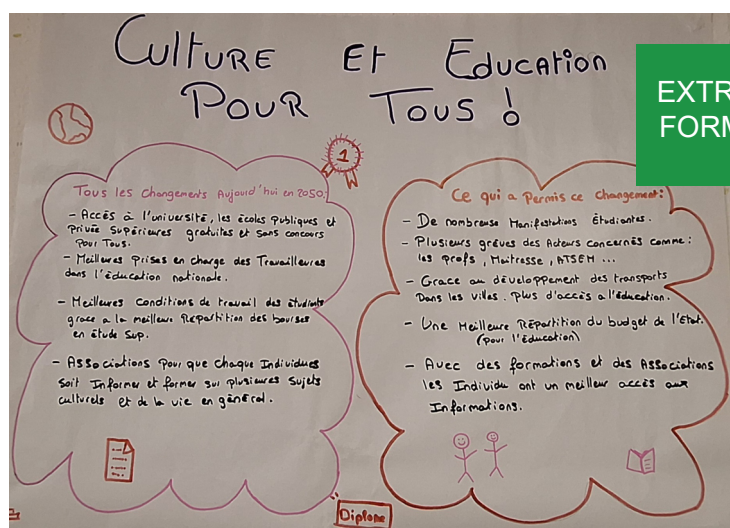 Culture Et Education
Pour Tous !
EXTR
FORM
1
Tous les changements Aujourd'hui en 2050:
- Accès à l'université, les écoles publiques et
Privée Supérieures gratuites et sans concours
Pour Tous.
- Meilleures Prises en charge des Travailleures
dans l'éducation nationale.
- Meilleures Conditions de travail des étudiants
grace a la meilleure Répartition des bourses
en étude Sup.
- Associations Pour que chaque Individues
soit Informer et former sur plusieures Sujets
culturels et de la vie en général.
Ce qui a Permis ce changement:
- De nombreuse Manifestations Étudiantes.
- Plusieurs grèves des Acteurs concernés comme:
les profs, Maitresse, ATSEM ...
- Grace au développement des transports
Dans les villes. Plus d'accès a l'éducation.
- Une Meilleure Répartition du budget de l'Etat.
(pour l'Éducation)
- Avec des formations et des Associations
les Individu ont un meilleur accès aux
Informations.
Diplome